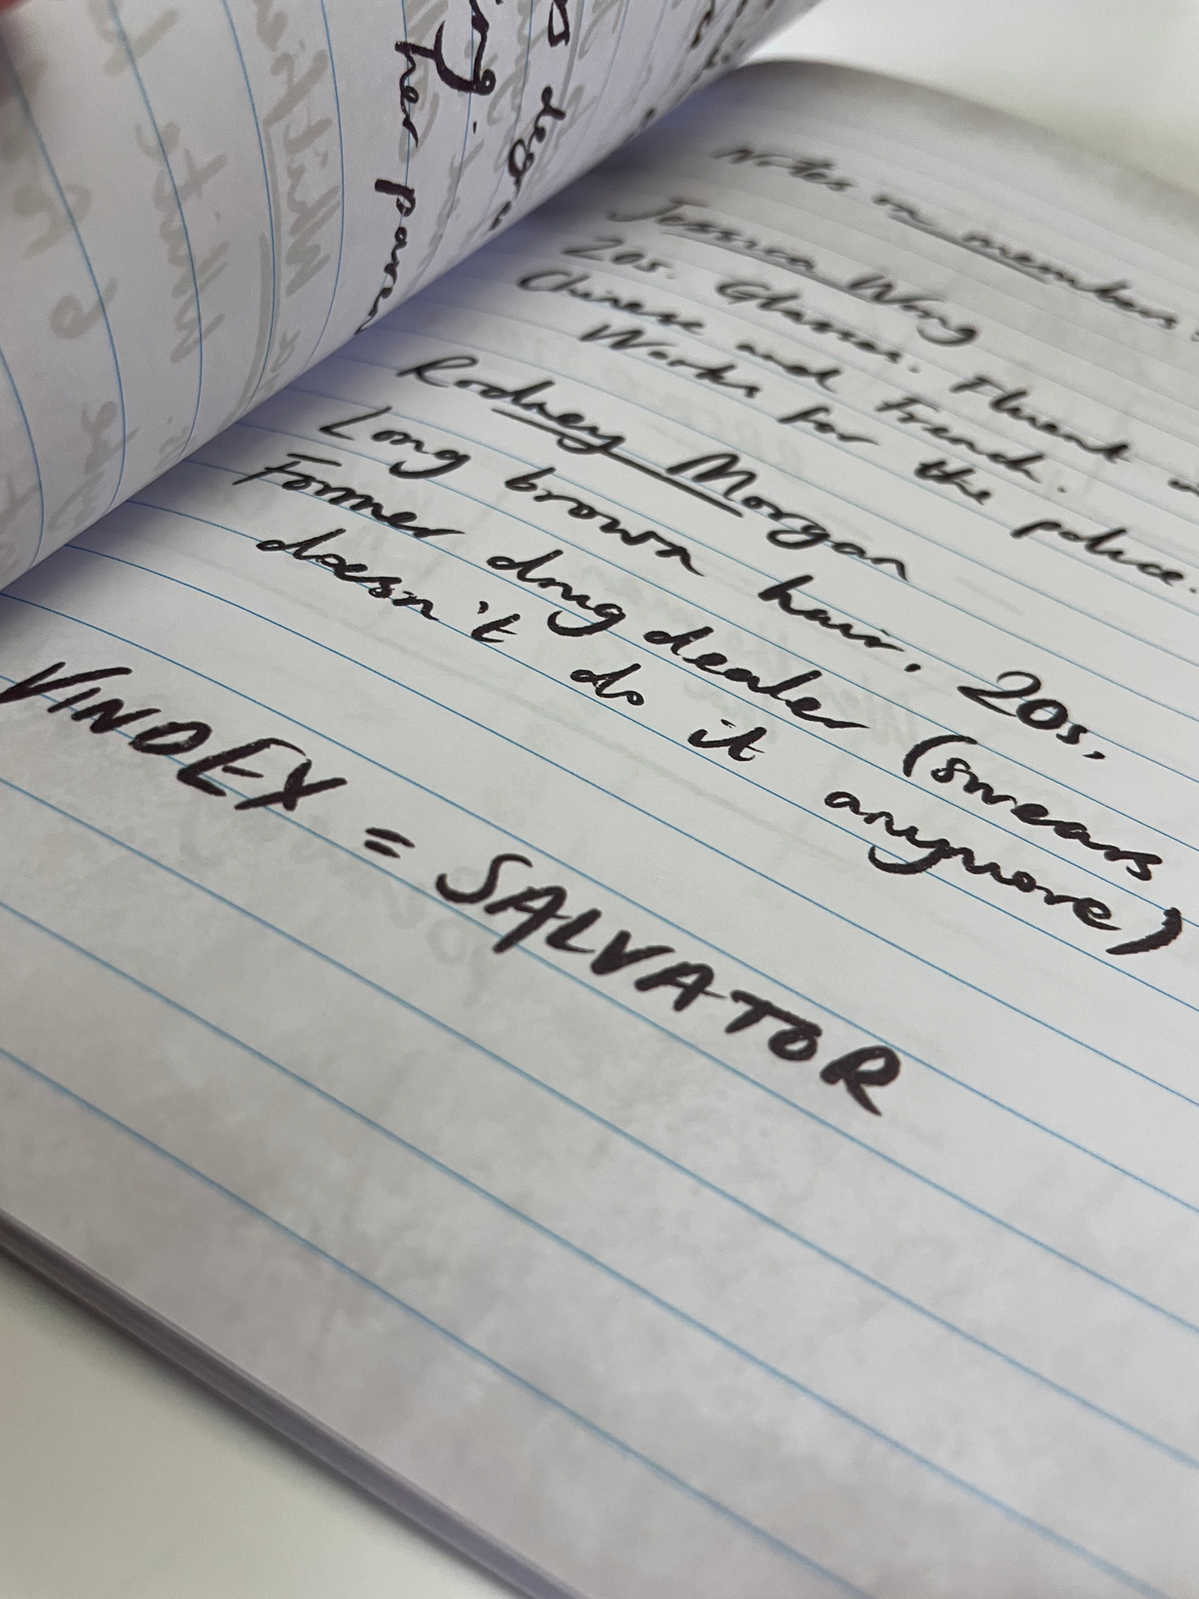 degre
ing.
her paren
Notes on members
Jessica Wong
20s. Glasses. Fluent
Chinese and French.
Works for the police.
Rodney Morgan
Long brown hair, 20s,
Former drug dealer (swears
doesn't do it anymore)
VINDEX = SALVATOR